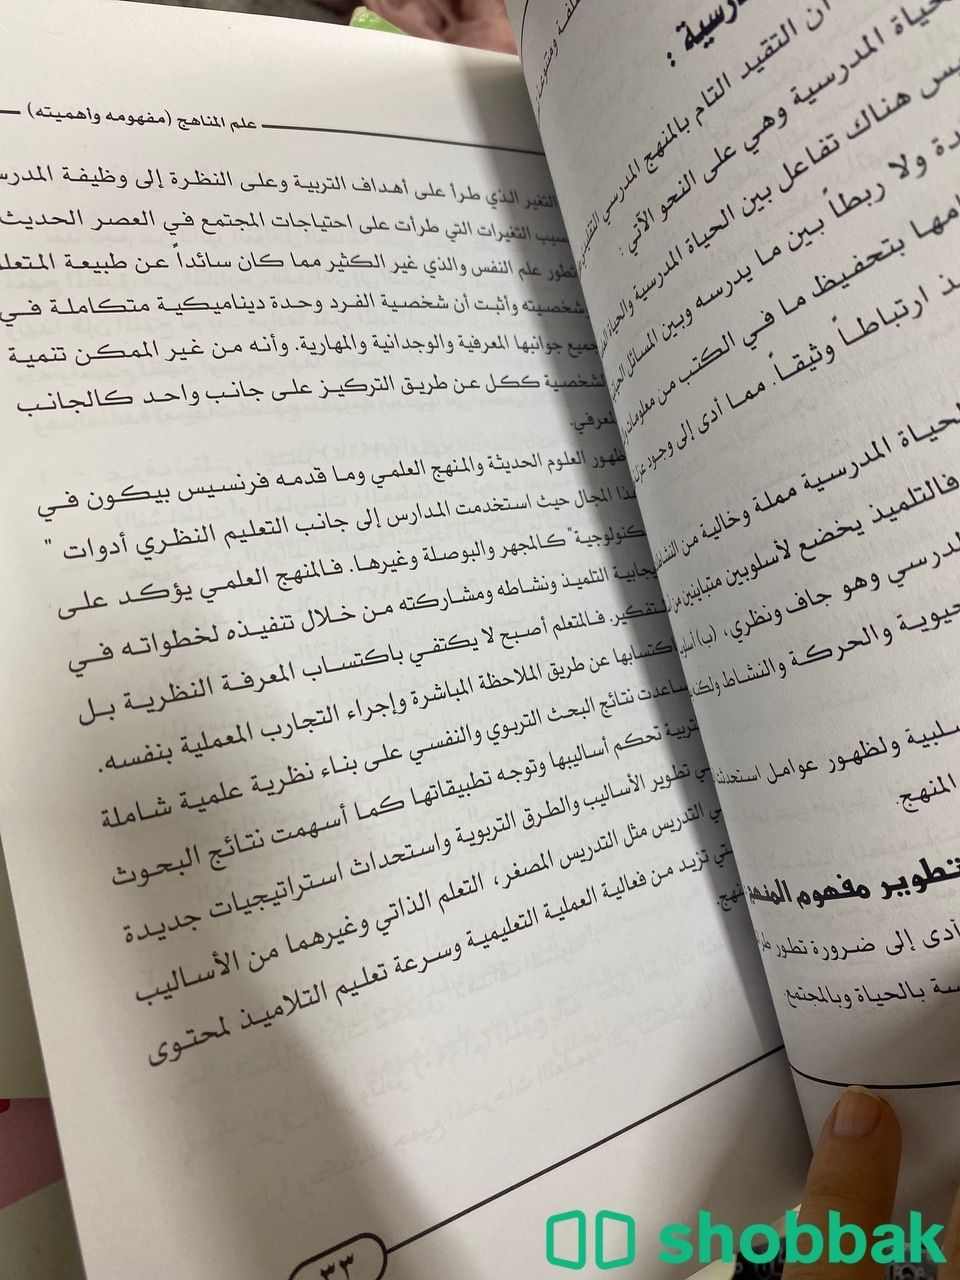 درسية :
أن التقيد التام بالمنهج المدرسي
الحياة المدرسية وهي على النحو الآتي :
ليس هناك تفاعل بين الحياة المدرسية والحياة
ولا ربطاً بين ما يدرسه وبين المسائل
بتحفيظ ما في الكتب من معلومات
ارتباطاً وثيقاً. مما أدى إلى وجود
الحياة المدرسية مملة وخالية من النشاط
فالتلميذ يخضع لأسلوبين متباينين
وهو جاف ونظري، (ب)
والحركة والنشاط
ولظهور عوامل استحدثت
المنهج.
تطوير مفهوم المنهج
أدى إلى ضرورة تطور
بالحياة وبالمجتمع
علم المناهج (مفهومه وأهميته)
التغير الذي طرأ على أهداف التربية وعلى النظرة إلى وظيفة
التغيرات التي طرأت على احتياجات المجتمع في العصر الحديث
تطور علم النفس والذي غير الكثير مما كان سائداً عن طبيعة
شخصيته وأثبت أن شخصية الفرد وحدة ديناميكية متكاملة في
جميع جوانبها المعرفية والوجدانية والمهارية. وأنه من غير الممكن تنمية
الشخصية ككل عن طريق التركيز على جانب واحد كالجانب
المعرفي.
ظهور العلوم الحديثة والمنهج العلمي وما قدمه فرنسيس بيكون في
هذا المجال حيث استخدمت المدارس إلى جانب التعليم النظري أدوات "
تكنولوجية" كالمجهر والبوصلة وغيرها. فالمنهج العلمي يؤكد على
إيجابية التلميذ ونشاطه ومشاركته من خلال تنفيذه لخطواته في
التفكير. فالمتعلم أصبح لا يكتفي باكتساب المعرفة النظرية بل
اكتسابها عن طريق الملاحظة المباشرة وإجراء التجارب المعملية بنفسه.
ساعدت نتائج البحث التربوي والنفسي على بناء نظرية علمية شاملة
للتربية تحكم أساليبها وتوجه تطبيقاتها كما أسهمت نتائج البحوث
في تطوير الأساليب والطرق التربوية واستحداث استراتيجيات جديدة
في التدريس مثل التدريس المصغر، التعلم الذاتي وغيرهما من الأساليب
التي تزيد من فعالية العملية التعليمية وسرعة تعليم التلاميذ لمحتوى
٣٣
shobbak